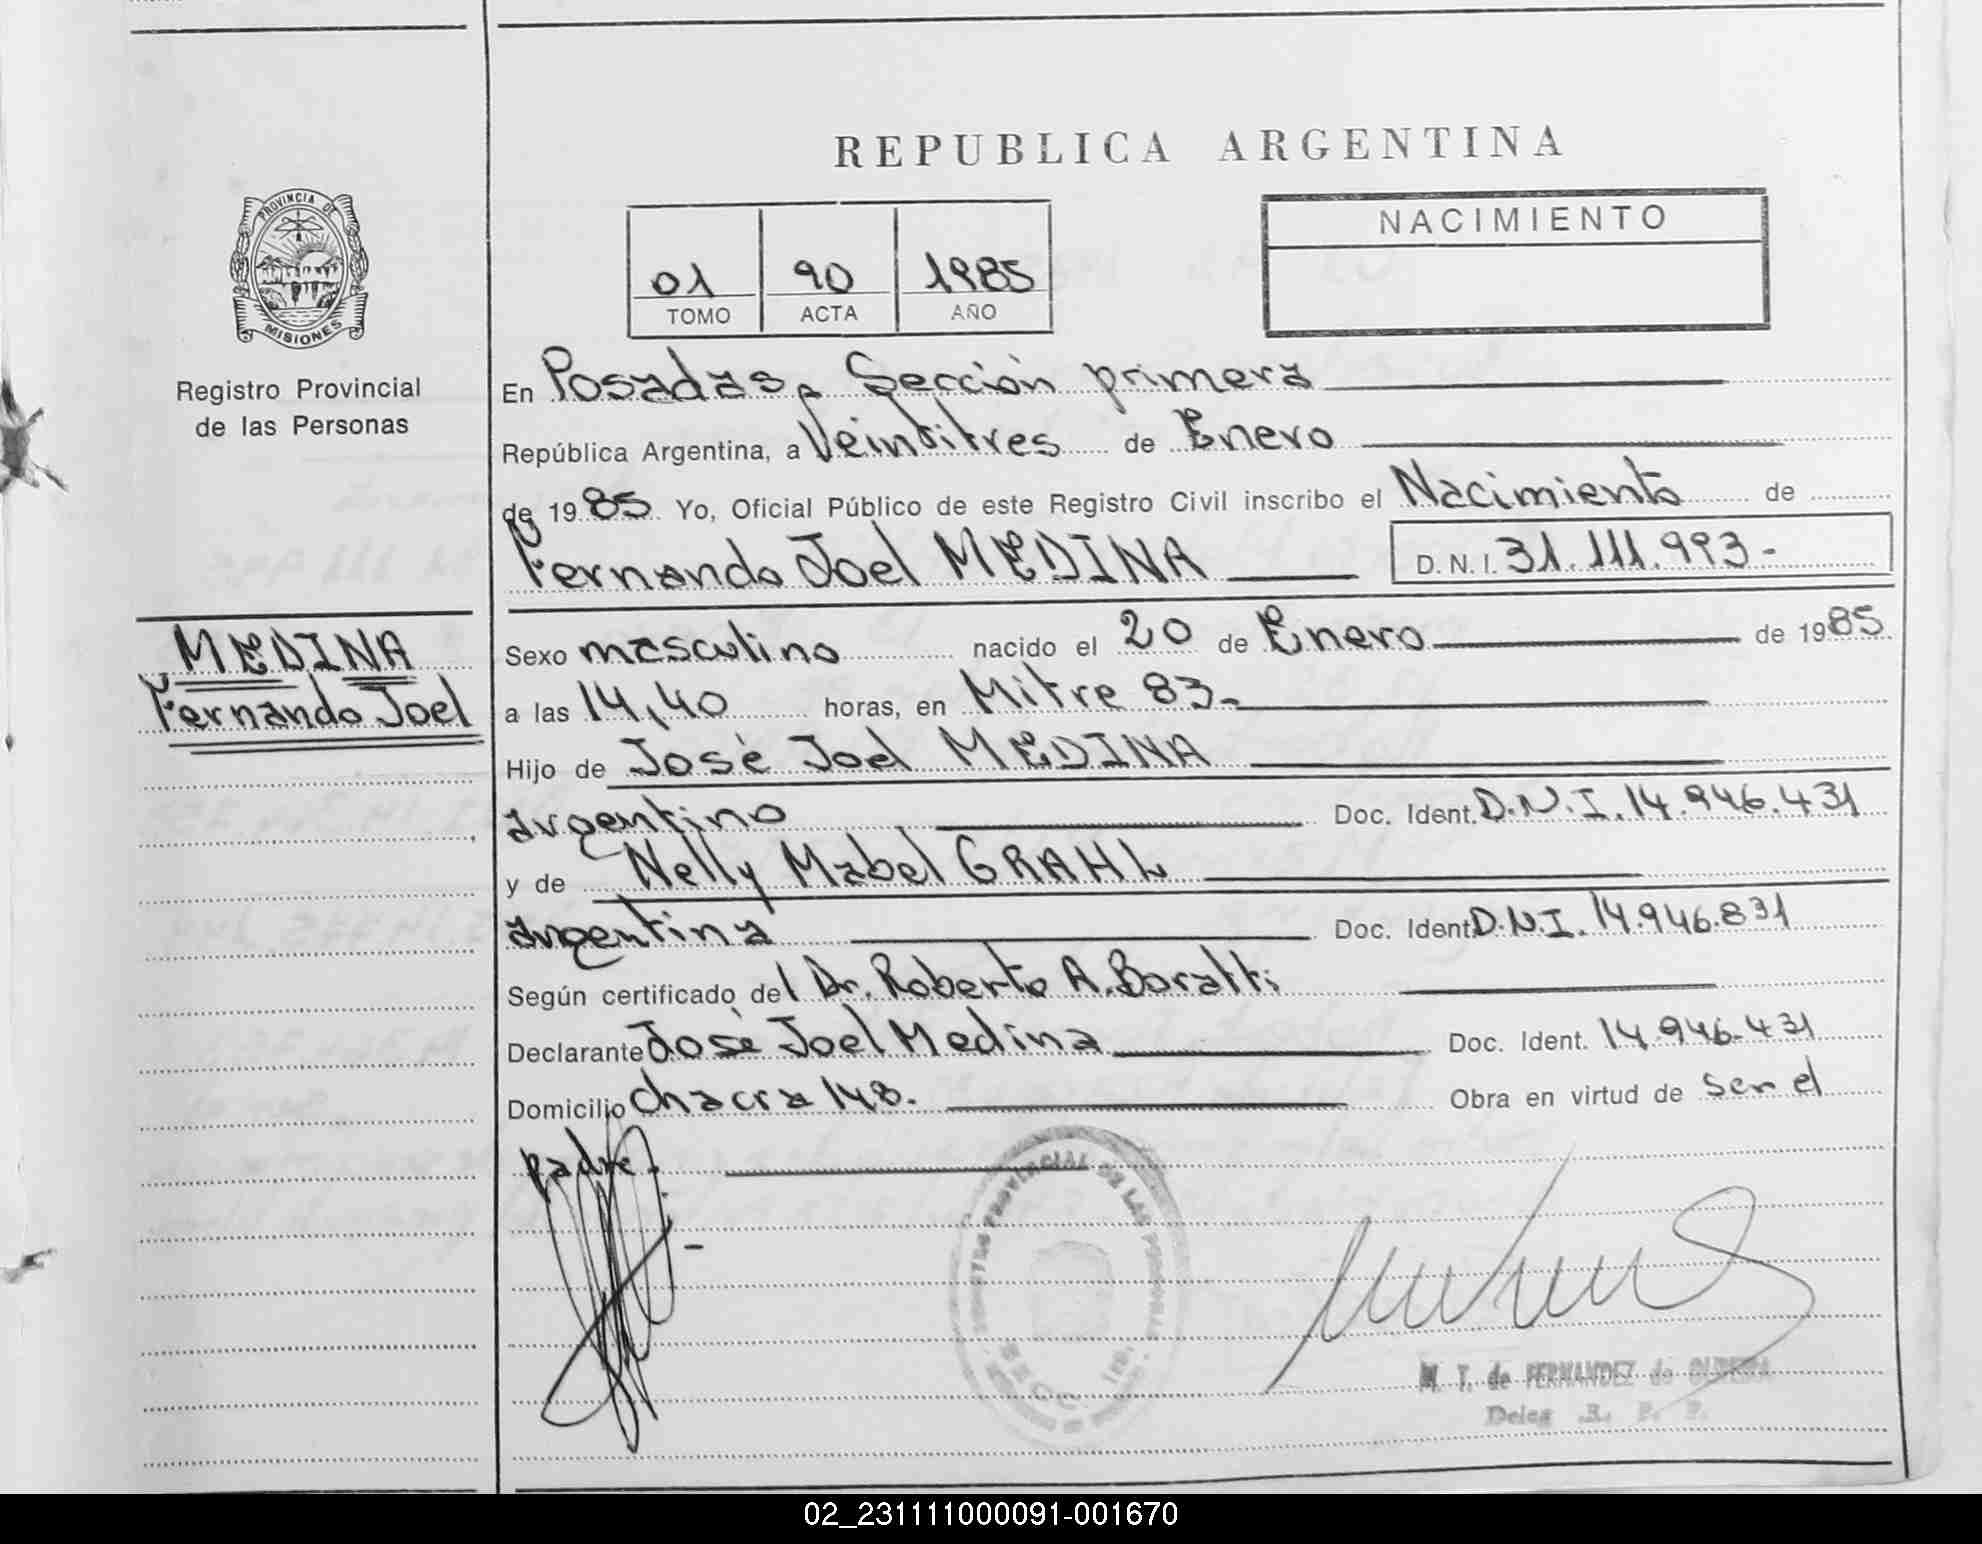 REPUBLICA ARGENTINA
PROVINCIA DE
MISIONES
Registro Provincial
de las Personas
01 90 1985
TOMO ACTA AÑO
NACIMIENTO
En Posadas, Sección primera
República Argentina, a Veintitres de Enero
de 1985 Yo, Oficial Público de este Registro Civil inscribo el Nacimiento de
Fernando Joel MEDINA D. N. I. 31.111.993-
MEDINA
Fernando Joel
Sexo masculino nacido el 20 de Enero de 1985
a las 14,40 horas, en Mitre 83-
Hijo de José Joel MEDINA
argentino Doc. Ident. D.N.I. 14.946.431
y de Nelly Mabel GRAHL
argentina Doc. Ident. D.N.I. 14.946.831
Según certificado del Dr. Roberto A. Boratti
Declarante José Joel Medina Doc. Ident. 14.946.431
Domicilio Chacra 148. Obra en virtud de ser el
padre.-
PROVINCIAL DE LAS PERSONAS
SECC. 1ra.
M. T. de FERNANDEZ de OLIVEIRA
Deleg. R. P. P.
02_231111000091-001670